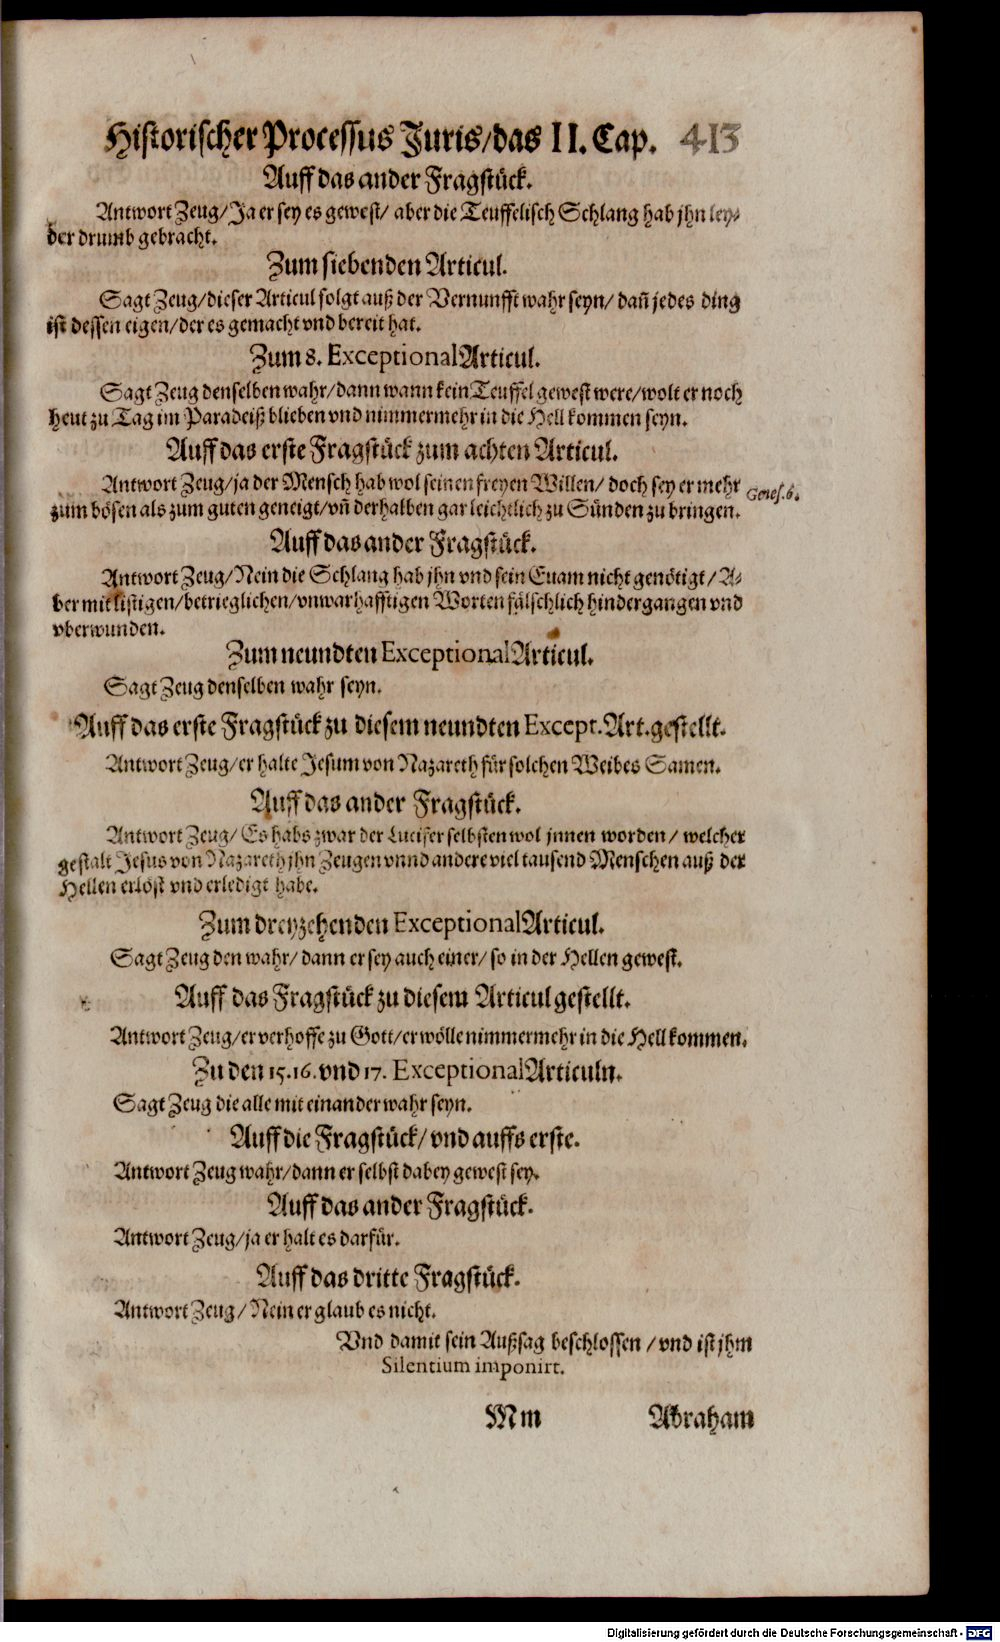 Historischer Processus Juris/das II. Cap. 413
Auff das ander Fragstück.
Antwort Zeug/Ja er sey es gewest/ aber die Teuffelisch Schlang hab jhn ley-
der drumb gebracht.
Zum siebenden Articul.
Sagt Zeug/dieser Articul folgt auß der Vernunfft wahr seyn/ dañ jedes ding
ist dessen eigen/der es gemacht vnd bereit hat.
Zum 8. Exceptional Articul.
Sagt Zeug denselben wahr/dann wann kein Teuffel gewest were/wolt er noch
heut zu Tag im Paradeiß blieben vnd nimmermehr in die Hell kommen seyn.
Auff das erste Fragstück zum achten Articul.
Antwort Zeug/ja der Mensch hab wol seinen freyen Willen/ doch sey er mehr Genes. 6.
zum bösen als zum guten geneigt/vñ derhalben gar leichtlich zu Sünden zu bringen.
Auff das ander Fragstück.
Antwort Zeug/Nein die Schlang hab jhn vnd sein Euam nicht genötigt/A-
ber mit listigen/betrieglichen/vnwarhafftigen Worten fälschlich hindergangen vnd
vberwunden.
Zum neundten Exceptional Articul.
Sagt Zeug denselben wahr seyn.
Auff das erste Fragstück zu diesem neundten Except. Art. gestellt.
Antwort Zeug/er halte Jesum von Nazareth für solchen Weibes Samen.
Auff das ander Fragstück.
Antwort Zeug/ Es habs zwar der Lucifer selbsten wol jnnen worden/ welcher
gestalt Jesus von Nazareth jhn Zeugen vnnd andere viel tausend Menschen auß der
Hellen erlöst vnd erledigt habe.
Zum dreyzehenden Exceptional Articul.
Sagt Zeug den wahr/ dann er sey auch einer/ so in der Hellen gewest.
Auff das Fragstück zu diesem Articul gestellt.
Antwort Zeug/er verhoffe zu Gott/er wölle nimmermehr in die Hell kommen.
Zu den 15.16. vnd 17. Exceptional Articuln.
Sagt Zeug die alle mit einander wahr seyn.
Auff die Fragstück/ vnd auffs erste.
Antwort Zeug wahr/dann er selbst dabey gewest sey.
Auff das ander Fragstück.
Antwort Zeug/ja er halt es darfür.
Auff das dritte Fragstück.
Antwort Zeug/ Nein er glaub es nicht.
Vnd damit sein Außsag beschlossen/ vnd ist jhm
Silentium imponirt.
Mm Abraham
Digitalisierung gefördert durch die Deutsche Forschungsgemeinschaft - DFG